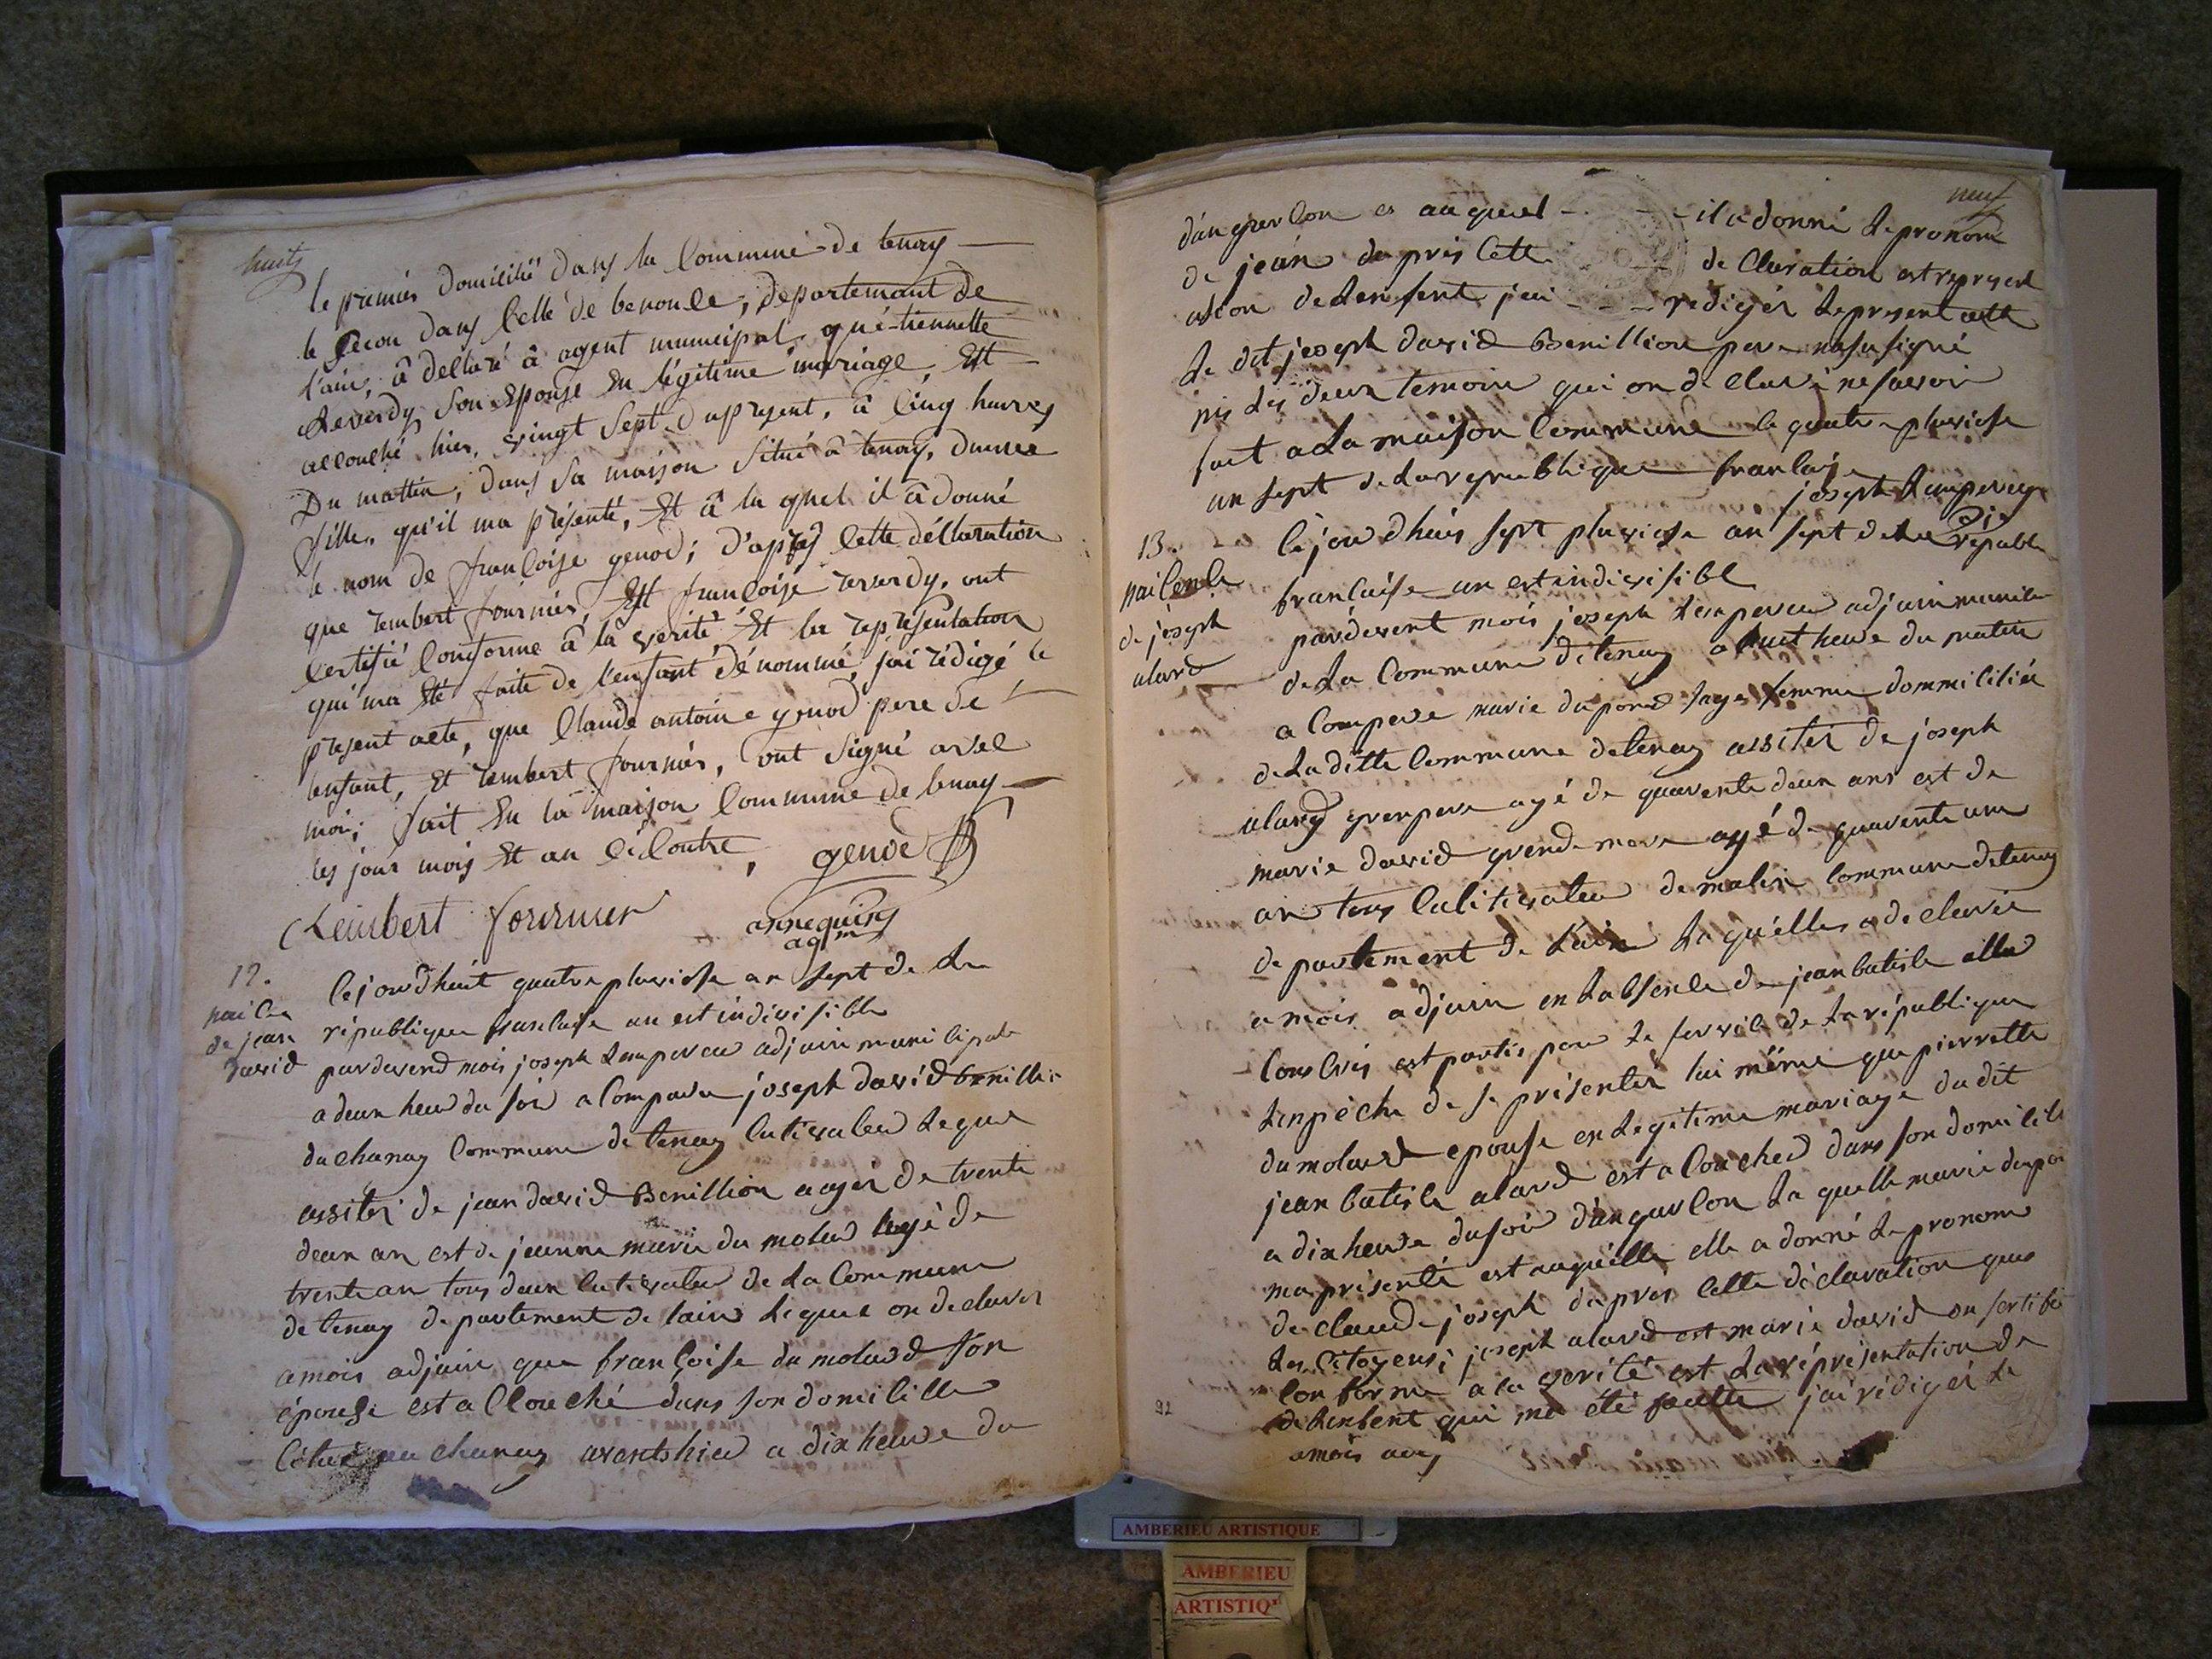 huits
le premier domicilié dans la Commune de tenay
le secon dans Cellé de benonce, departemant de
l'ain, â déllaré â agent municipal, qu'é-tiennette
Reverdy Son Epouse En légitime mariage, Ett
accouché hier, vingt Sept du présent, â Cinq heures
Du mattin, dans Sa maison Situé â tenay, d'une
fille, qu'il ma présenté, Et â la quel il â donné
le nom de françoise genod; d'après Cette déllaration
que rembert fournier, Ett françoise reverdy, ont
Certifié Conforme â la verité Et la représentation
qui ma Eté faite de l'enfant dénommé, j'ai rédigé le
présent acte, que Claude antoine genod pere de
lenfant, Et rembert fournier, ont Signé avec
moi; fait En la maison Commune de tenay
les jour mois Et an Ci Contre,
genod
Reimbert fournier
annequin
agm
12.
naice
de jean
david
Cejourdhuit quatre pluviose an sept de la
république francaise un est indivisible
pardevend mois joseph Lempereu adjoin municipale
a deux heur du soir a Comparu joseph david benillion
du chanay Commune de tenay Cultivateu lequel
assiter de jean david Benillion a agér de trente
deux an est de jeanne marie du molard agé de
trente an tous deux Cultivateu de La Commune
de tenay departement de lain lequel on declarer
amois adjoin que françoise du molard son
épouse est a Ccouché dans son domicille
Citué au chanay avantshier a dix heure du
neuf
d'un garson es auquel - - - il a donné le pronom
de jean daprès Cette - - de Claration est represent
ation de Lenfent jeai - - - redigér lepresent acte
le dit joseph david Benillion pere nasusigné
nis les deux temoin qui on de claré ne savoir
fait a La maison Commune le quatre pluviose
un sept de La republique francaise
joseph Lempereu
adj.
13.
naicence
de joseph
alard
Cejourdhuis sept pluviose an sept de La republi
francaise un est indivisible
pardevent mois joseph Lempereu adjoin municipa
de La Commune de tenay a huit heure du matin
a Compare marie dupond sage femme dommicilier
de La ditte Commune de tenay assiter de joseph
alard grenpere agé de quarente deux ans est de
marie david grende mere agé de quarente une
an tous Cultivateu de malix Commune de tenay
de partement de Lain La quélles a declarée
a mois adjoin en Labsence de jean batiste allard
Conscris est partis pour Le servise de La république
Lenpèche de se présenter lui même que pierrette
dumolard epouse en Legitime mariage du dit
jean batiste alard est a Couched dans son domicile
a dix heure du soir d'un garson La quelle marie dupon
ma présenté est auquélle elle a donné Le pronom
de claude joseph daprès Cette déclaration que
Les Citoyens; joseph alard est marie david on sertifié
Conforme a la verité est La réprésentation de
de Lenfent qui ma été faitte jai rédigér Le
amois avez
92
AMBERIEU ARTISTIQUE
AMBERIEU
ARTISTIQ